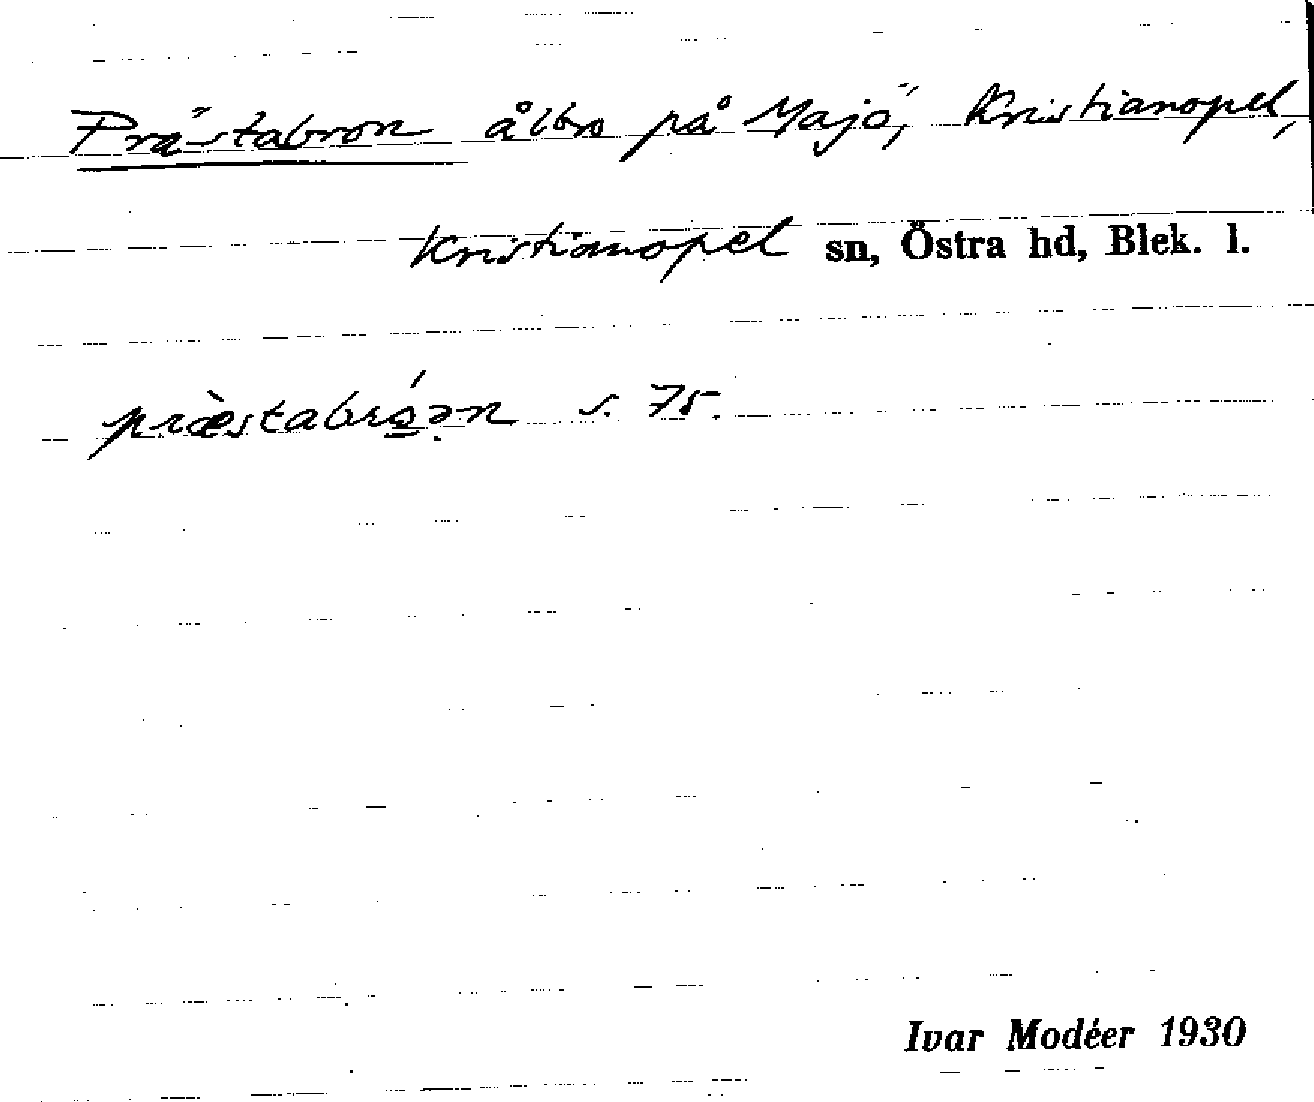 Prästabron ålbro på Majö, Kristianopel,
Kristianopel sn, Östra hd, Blek. l.
præ̀stabró̲ən s. 75.
Ivar Modéer 1930